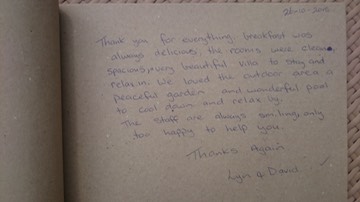 26-10-2015
Thank you for everything, breakfast was
always delicious, the rooms were clean,
spacious, very beautiful villa to stay and
relax in. We loved the outdoor area a
peaceful garden and wonderful pool
to cool down and relax by.
The staff are always smiling, only
too happy to help you.
Thanks Again
Lyn & David